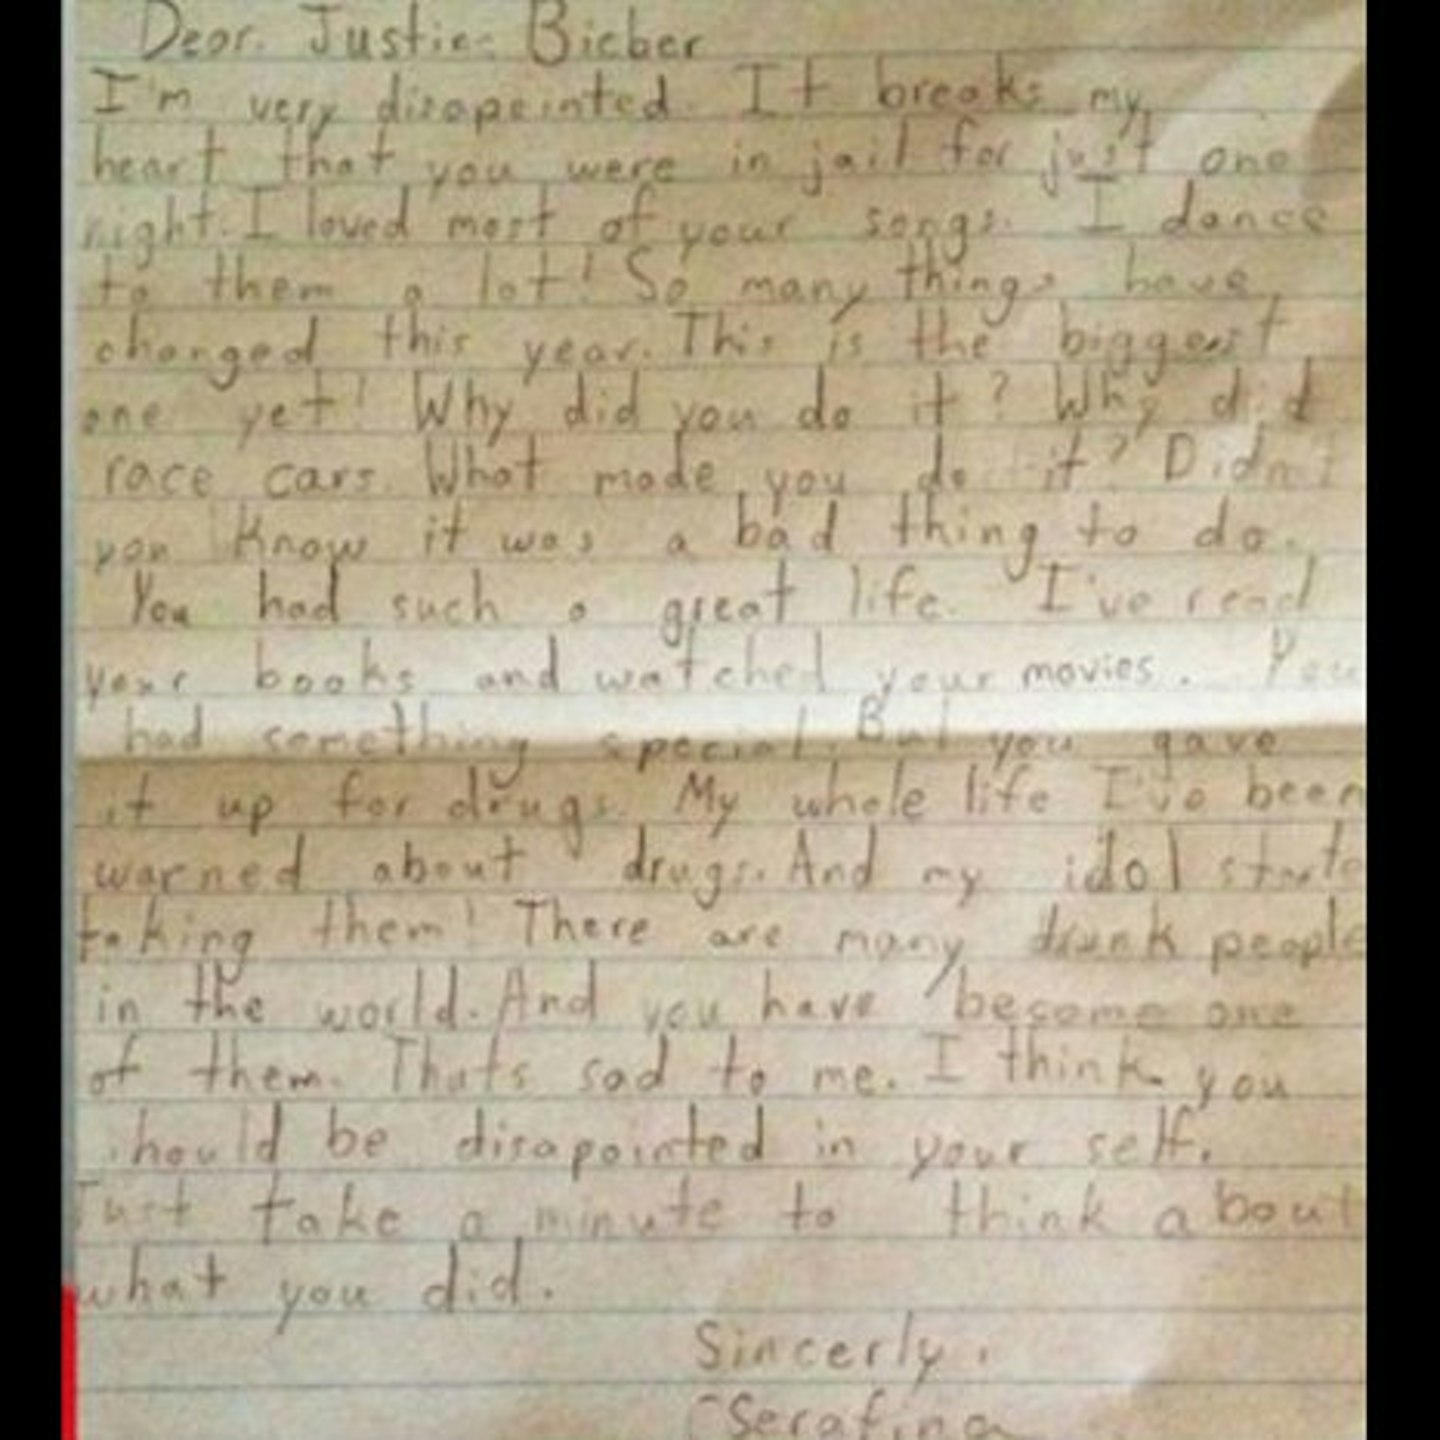 Dear. Justin Bieber
I'm very disapointed. It breaks my
heart that you were in jail for just one
night. I loved most of your songs. I dance
to them a lot! So many things have
changed this year. This is the biggest
one yet! Why did you do it? Why did
race cars. What made you do it? Didn't
you know it was a bad thing to do.
You had such a great life. I've read
your books and watched your movies. You
had something special. But you gave
it up for drugs. My whole life I've been
warned about drugs. And my idol starts
taking them! There are many drunk people
in the world. And you have become one
of them. Thats sad to me. I think you
should be disapointed in your self.
Just take a minute to think about
what you did.
Sincerly.
Serafina